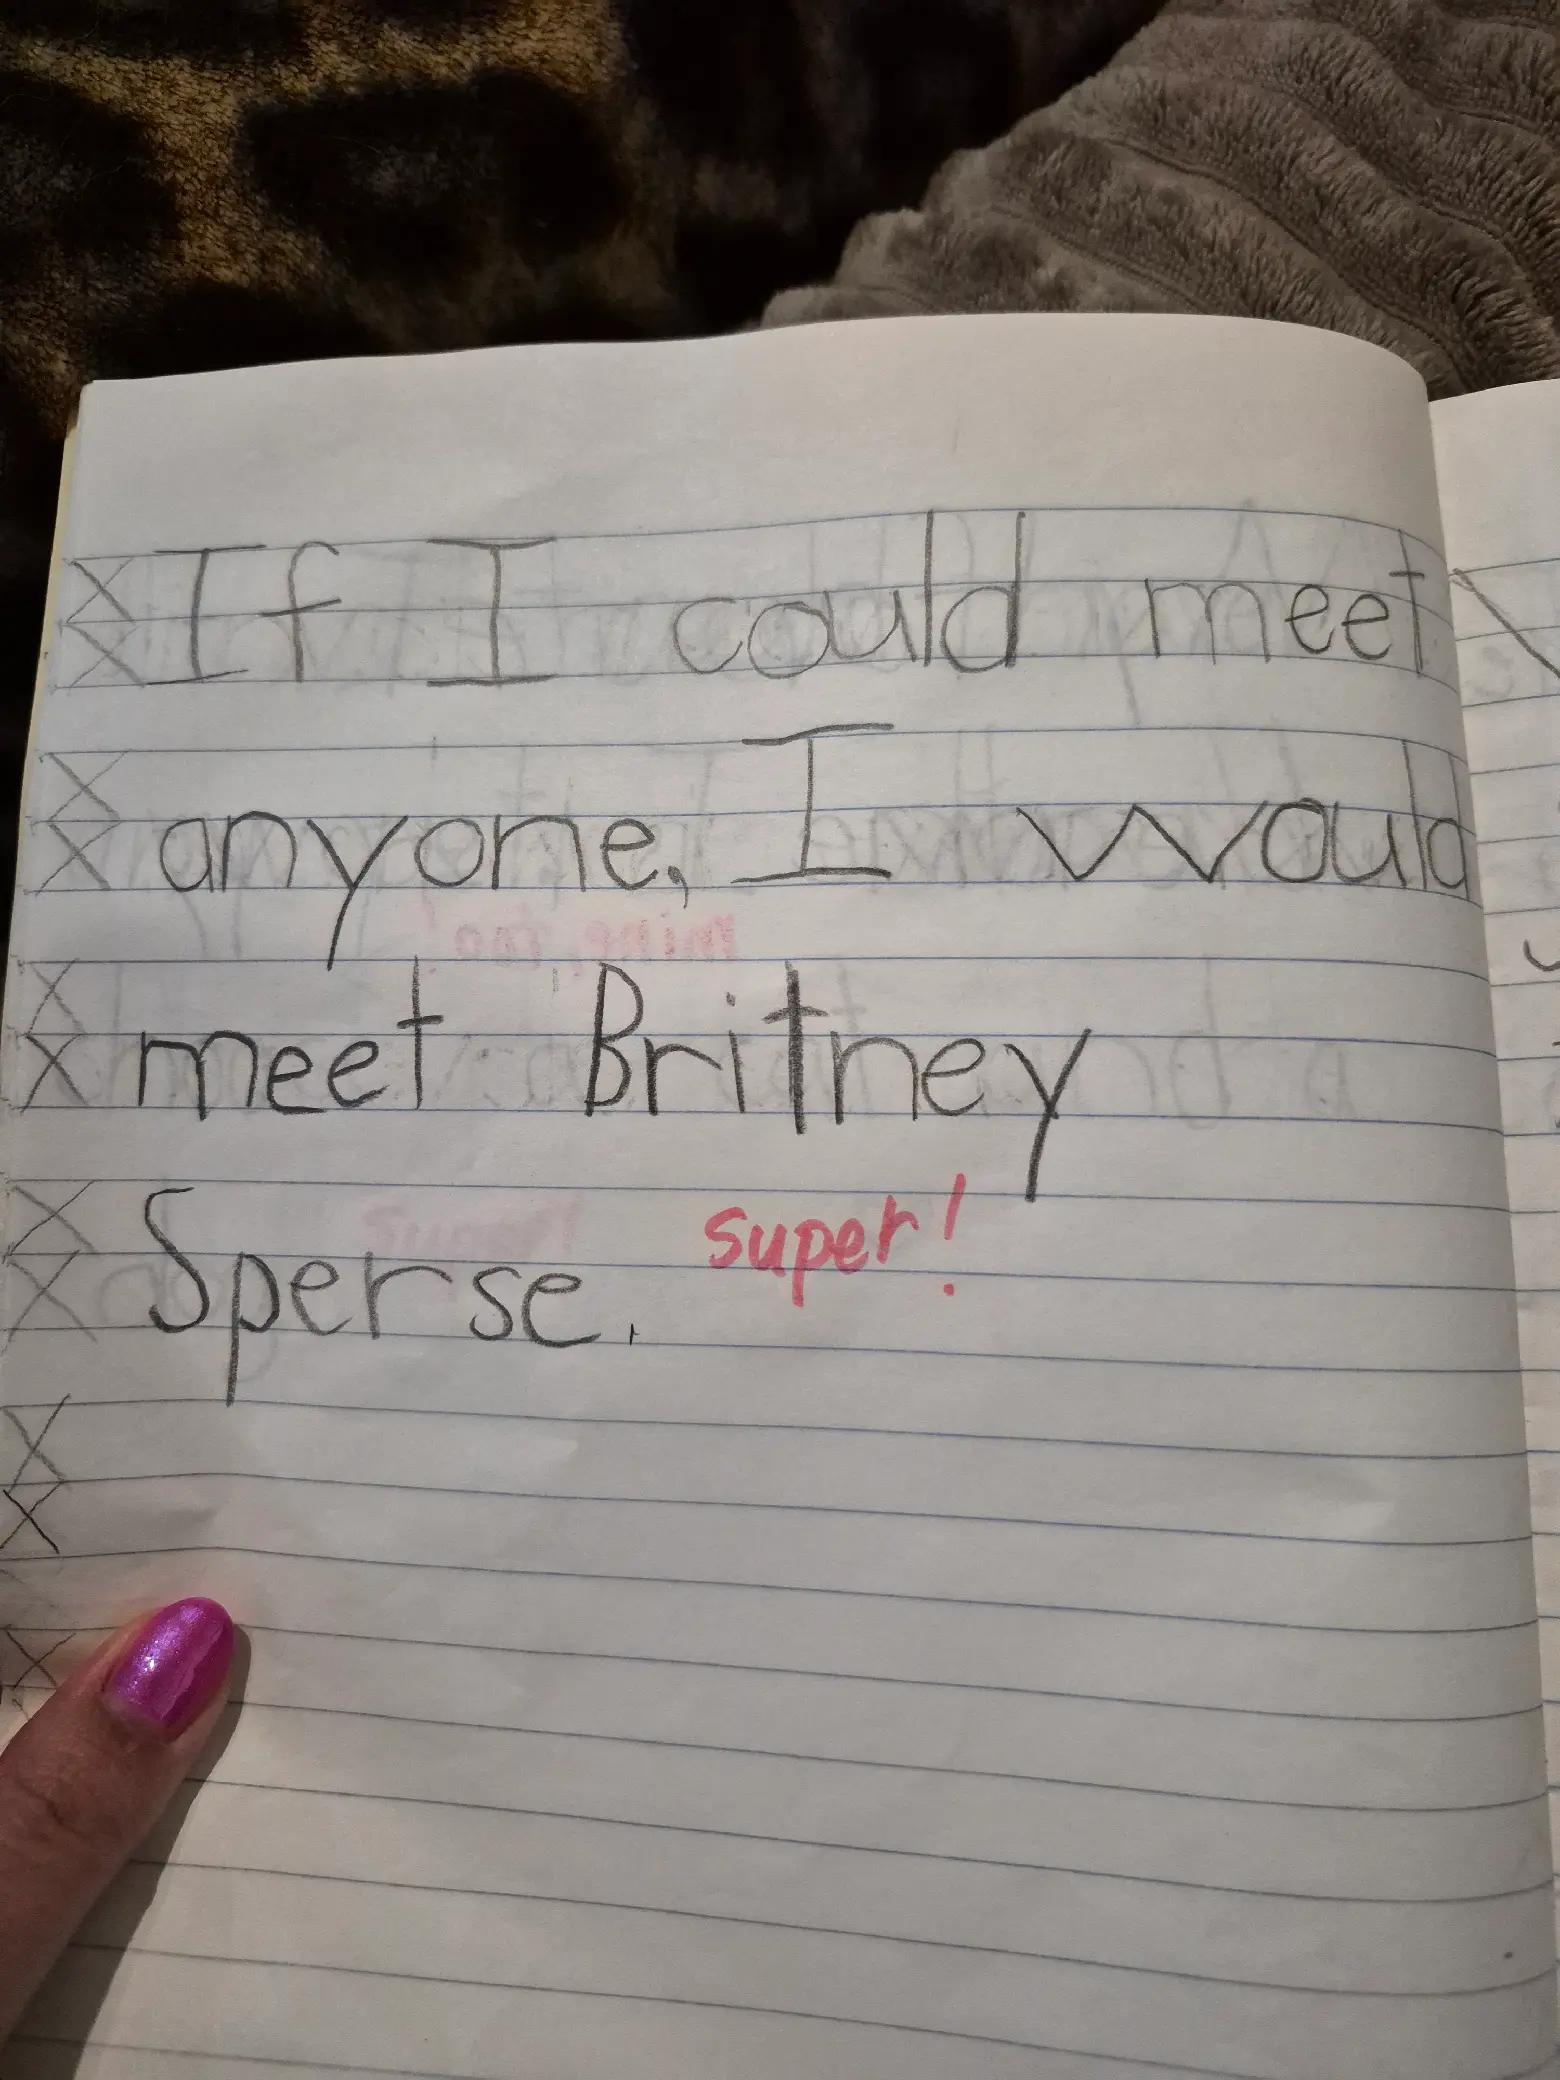 If I could meet
anyone, I would
meet Britney
Sperse. super!